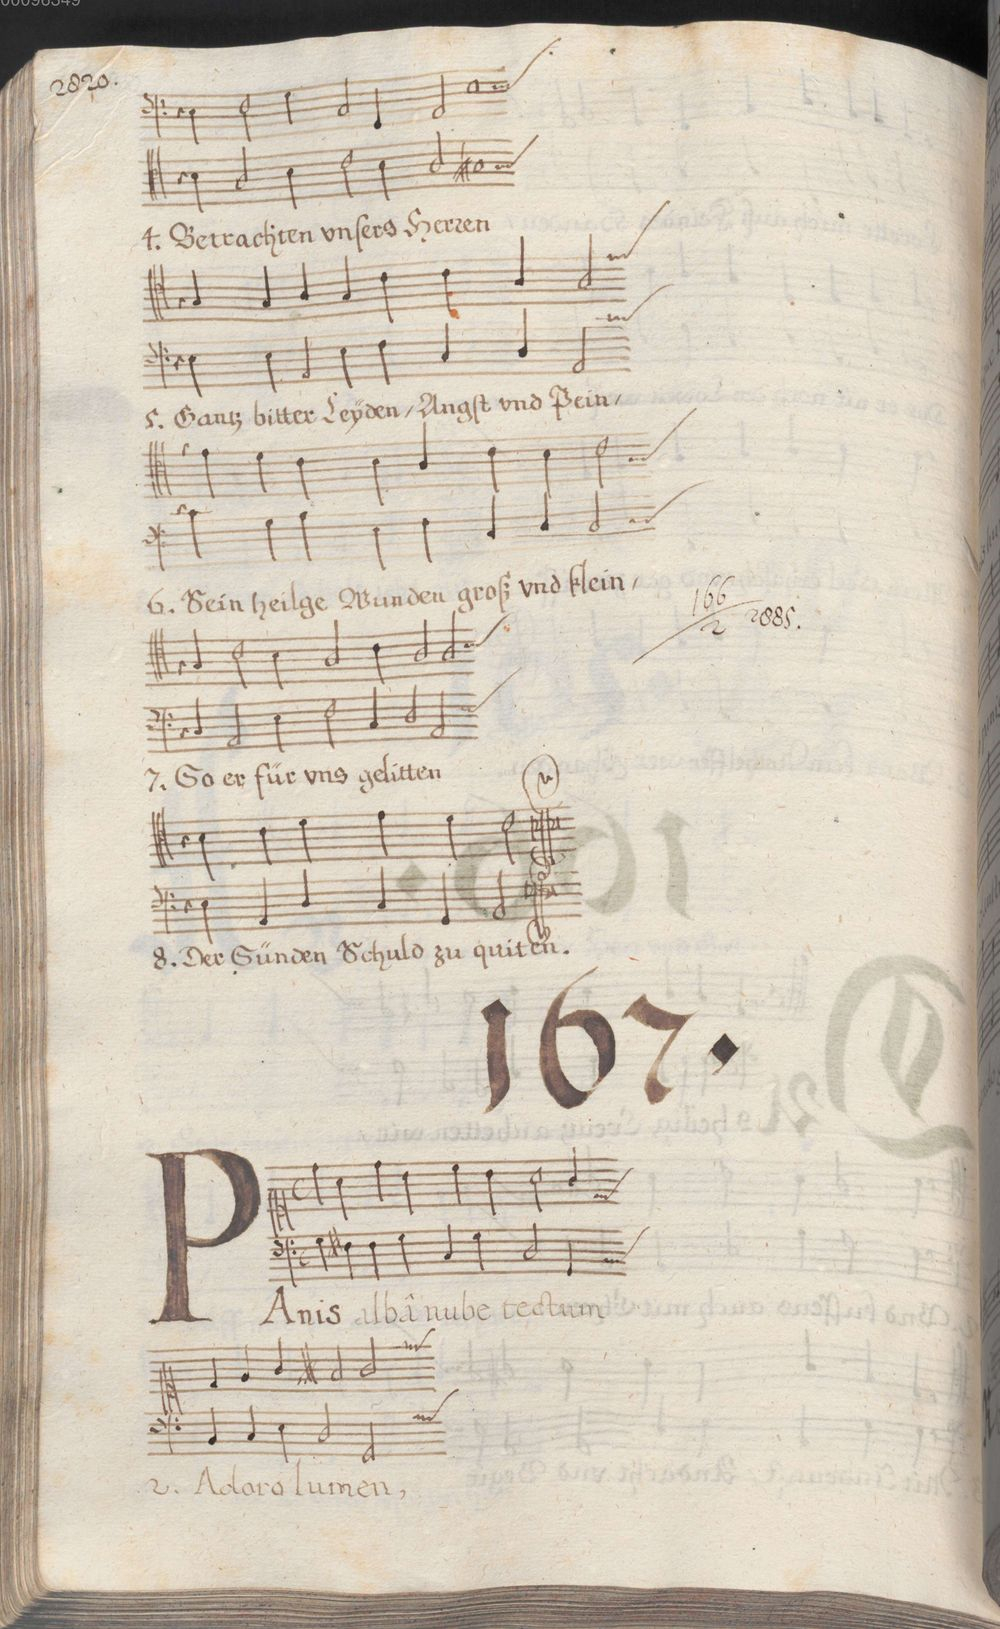 00096349
2820.
4. Betrachten vnsers Herren
5. Gantz bitter Leÿden / Angst vnd Pein /
6. Sein heilge Wunden groß vnd klein /
166
2 2885.
7. So er für vns gelitten
8. Der Sünden Schuld zu quiten.
167.
PAnis albâ nube tectum
2. Adoro lumen,